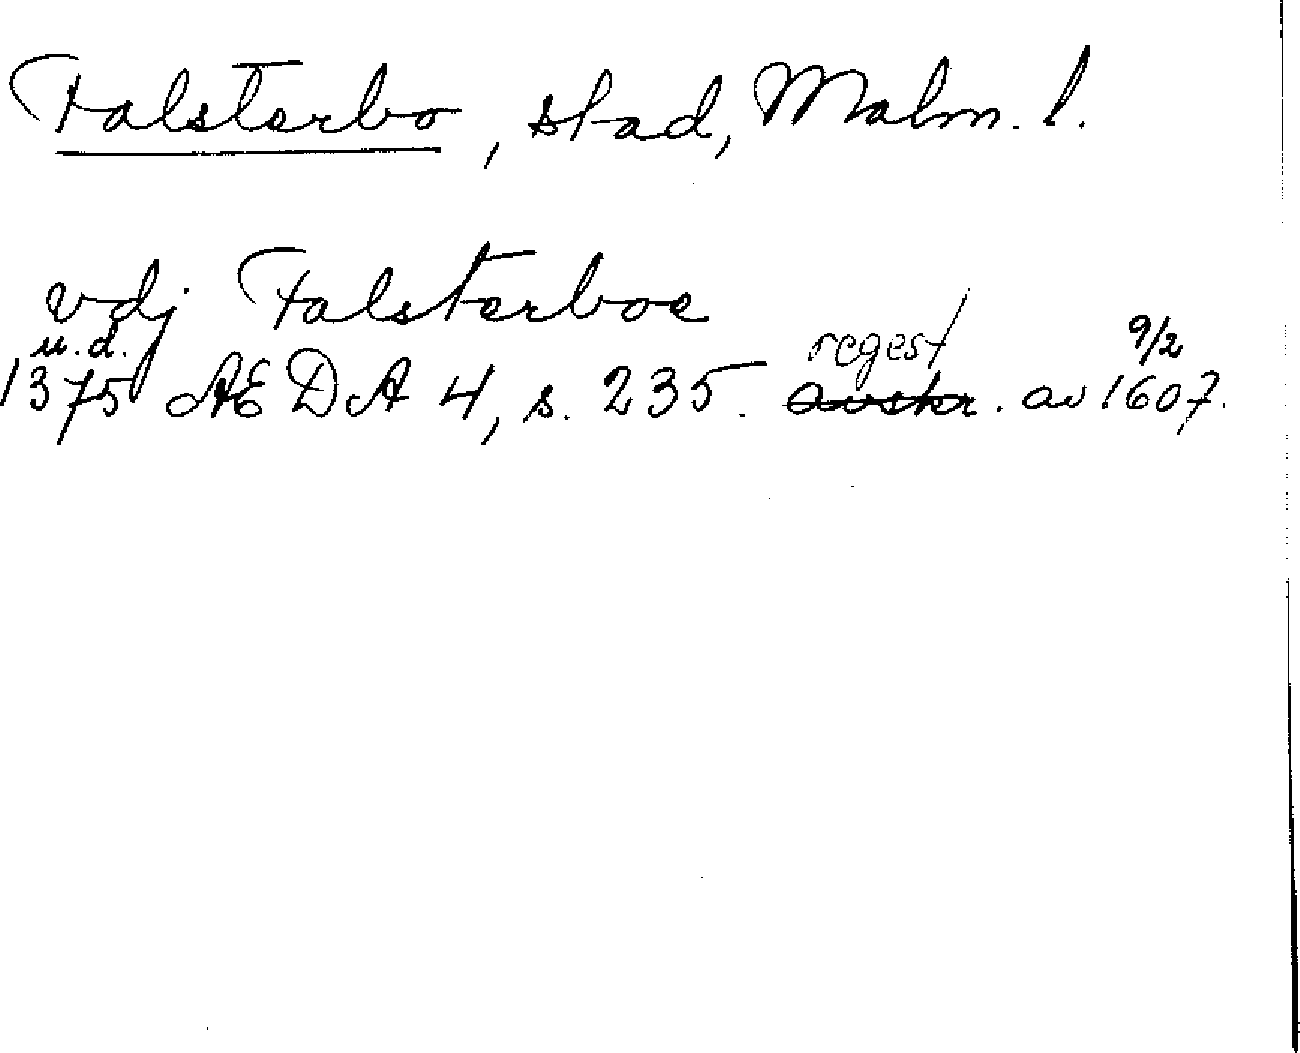 Falsterbo, stad, Malm. l.
vdj Falsterboe
u.d. regest 9/2
1375 AEDA 4, s. 235. avskr. av 1607.